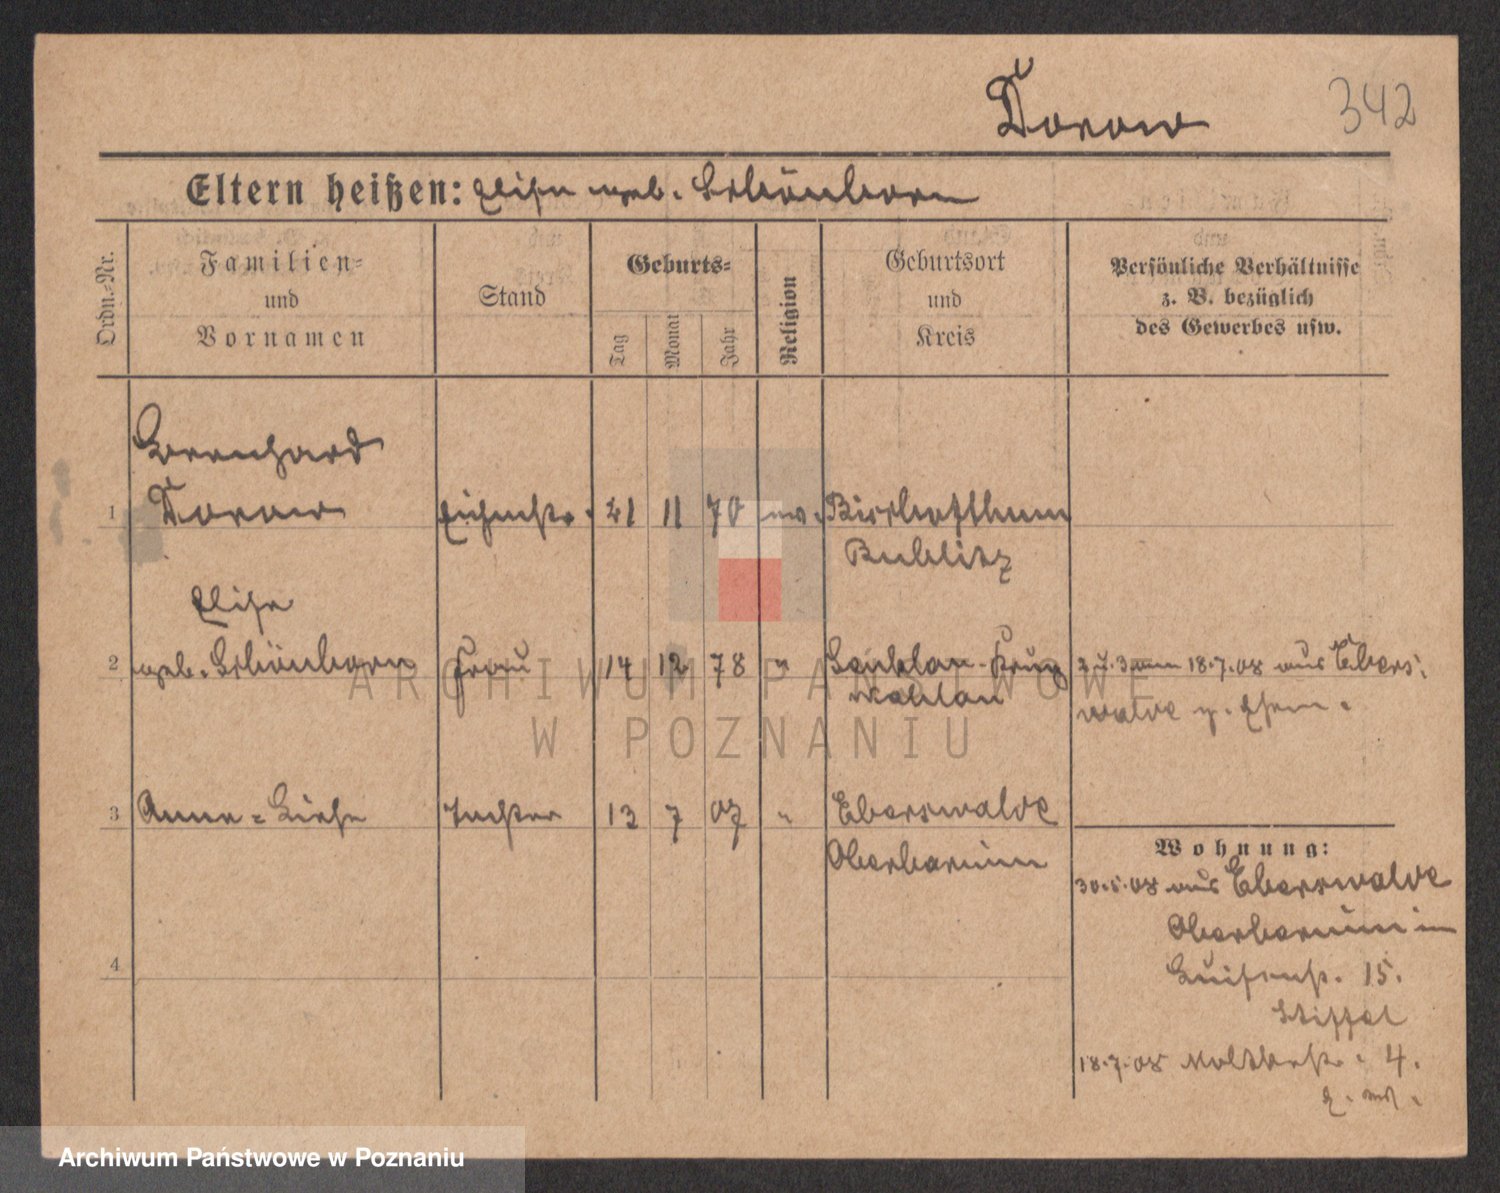 Dorow
342
Eltern heißen: Elise geb. Schönborn
Ordn.-Nr.
Familien-
und
Vornamen
Stand
Geburts-
Tag
Monat
Jahr
Religion
Geburtsort
und
Kreis
Persönliche Verhältnisse
z. B. bezüglich
des Gewerbes usw.
Bernhard
1 Dorow 21 11 70 ev. Bischofthum
Bublitz
Elise
2 geb. Schönborn Frau 14 12 78 " Krug
Wohlau
2 u. 3 18.7.08 aus Ebers-
walde z. Ehem.
3 Anne-Liese Tochter 13 7 07 " Eberswalde
Oberbarnim
4
Wohnung:
30.5.08 aus Eberswalde
Oberbarnim in
Luisenstr. 15.
18.7.08 Moltkestr. 4.
ARCHIWUM PAŃSTWOWE
W POZNANIU
Archiwum Państwowe w Poznaniu